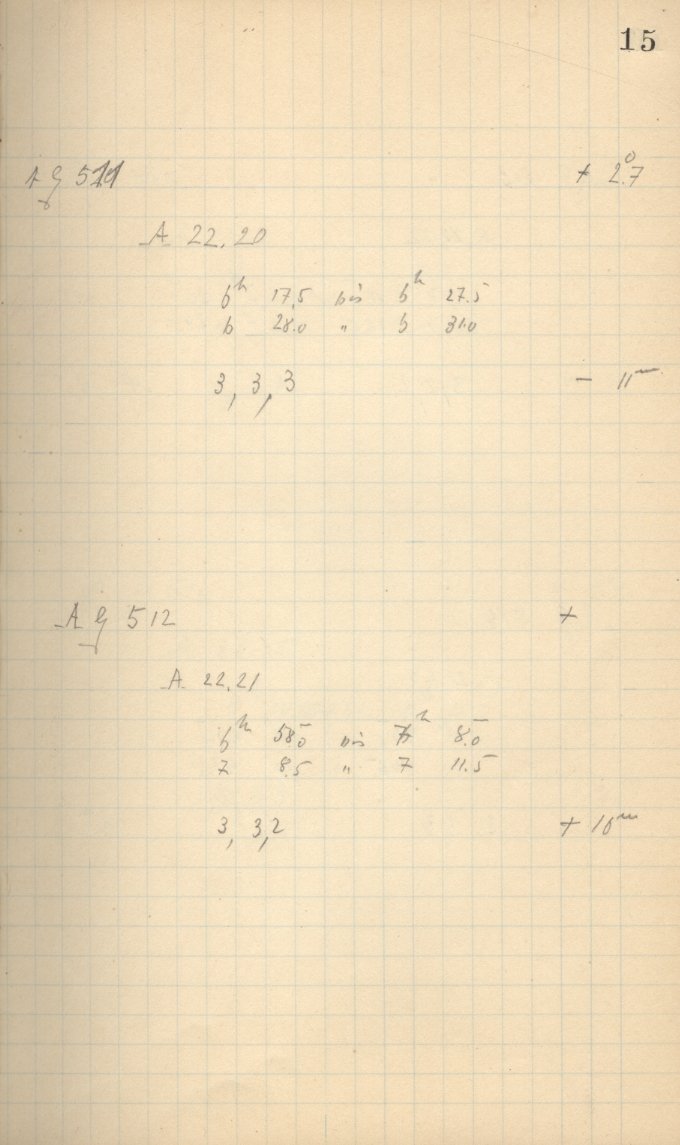 15
A G 511 + 2.°7
A 22.20
6ʰ 17.5 bis 6ʰ 27.5
6 28.0 " 6 31.0
3, 3, 3 - 11ᵐ
A G 512 +
A 22.21
6ʰ 58.0 bis 7ʰ 8.0
7 8.5 " 7 11.5
3, 3, 2 + 16ᵐ